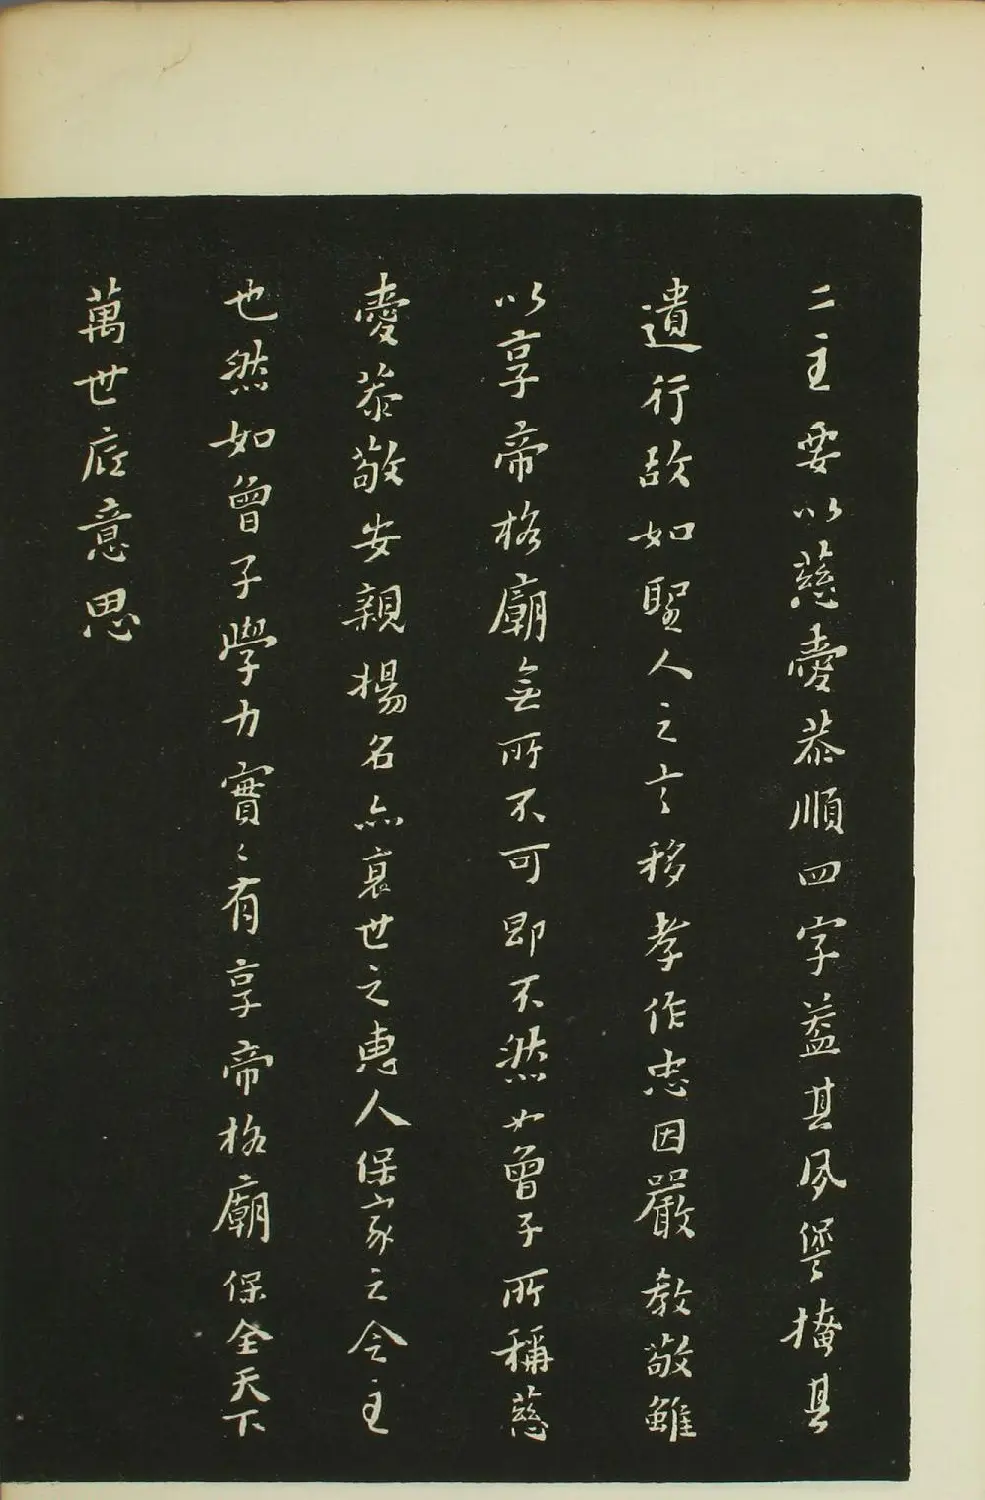 二主要以慈愛恭順四字蓋其夙愆掩其
遺行故如聖人之言移孝作忠因嚴教敬雖
以享帝格廟無所不可即不然如曾子所稱慈
愛恭敬安親揚名亦衰世之專人保家之令主
也然如曾子學力實〻有享帝格廟保全天下
萬世底意思